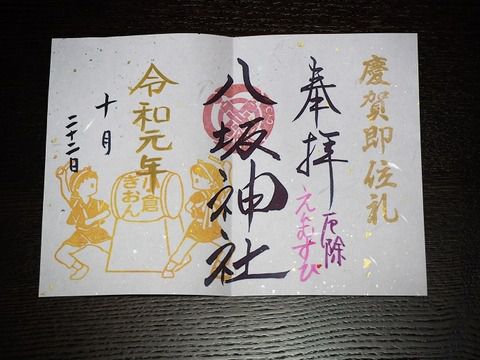 慶賀即位礼
奉拝
厄除
えんむすび
八坂神社
令和元年
十月
二十二日
小倉
ぎおん